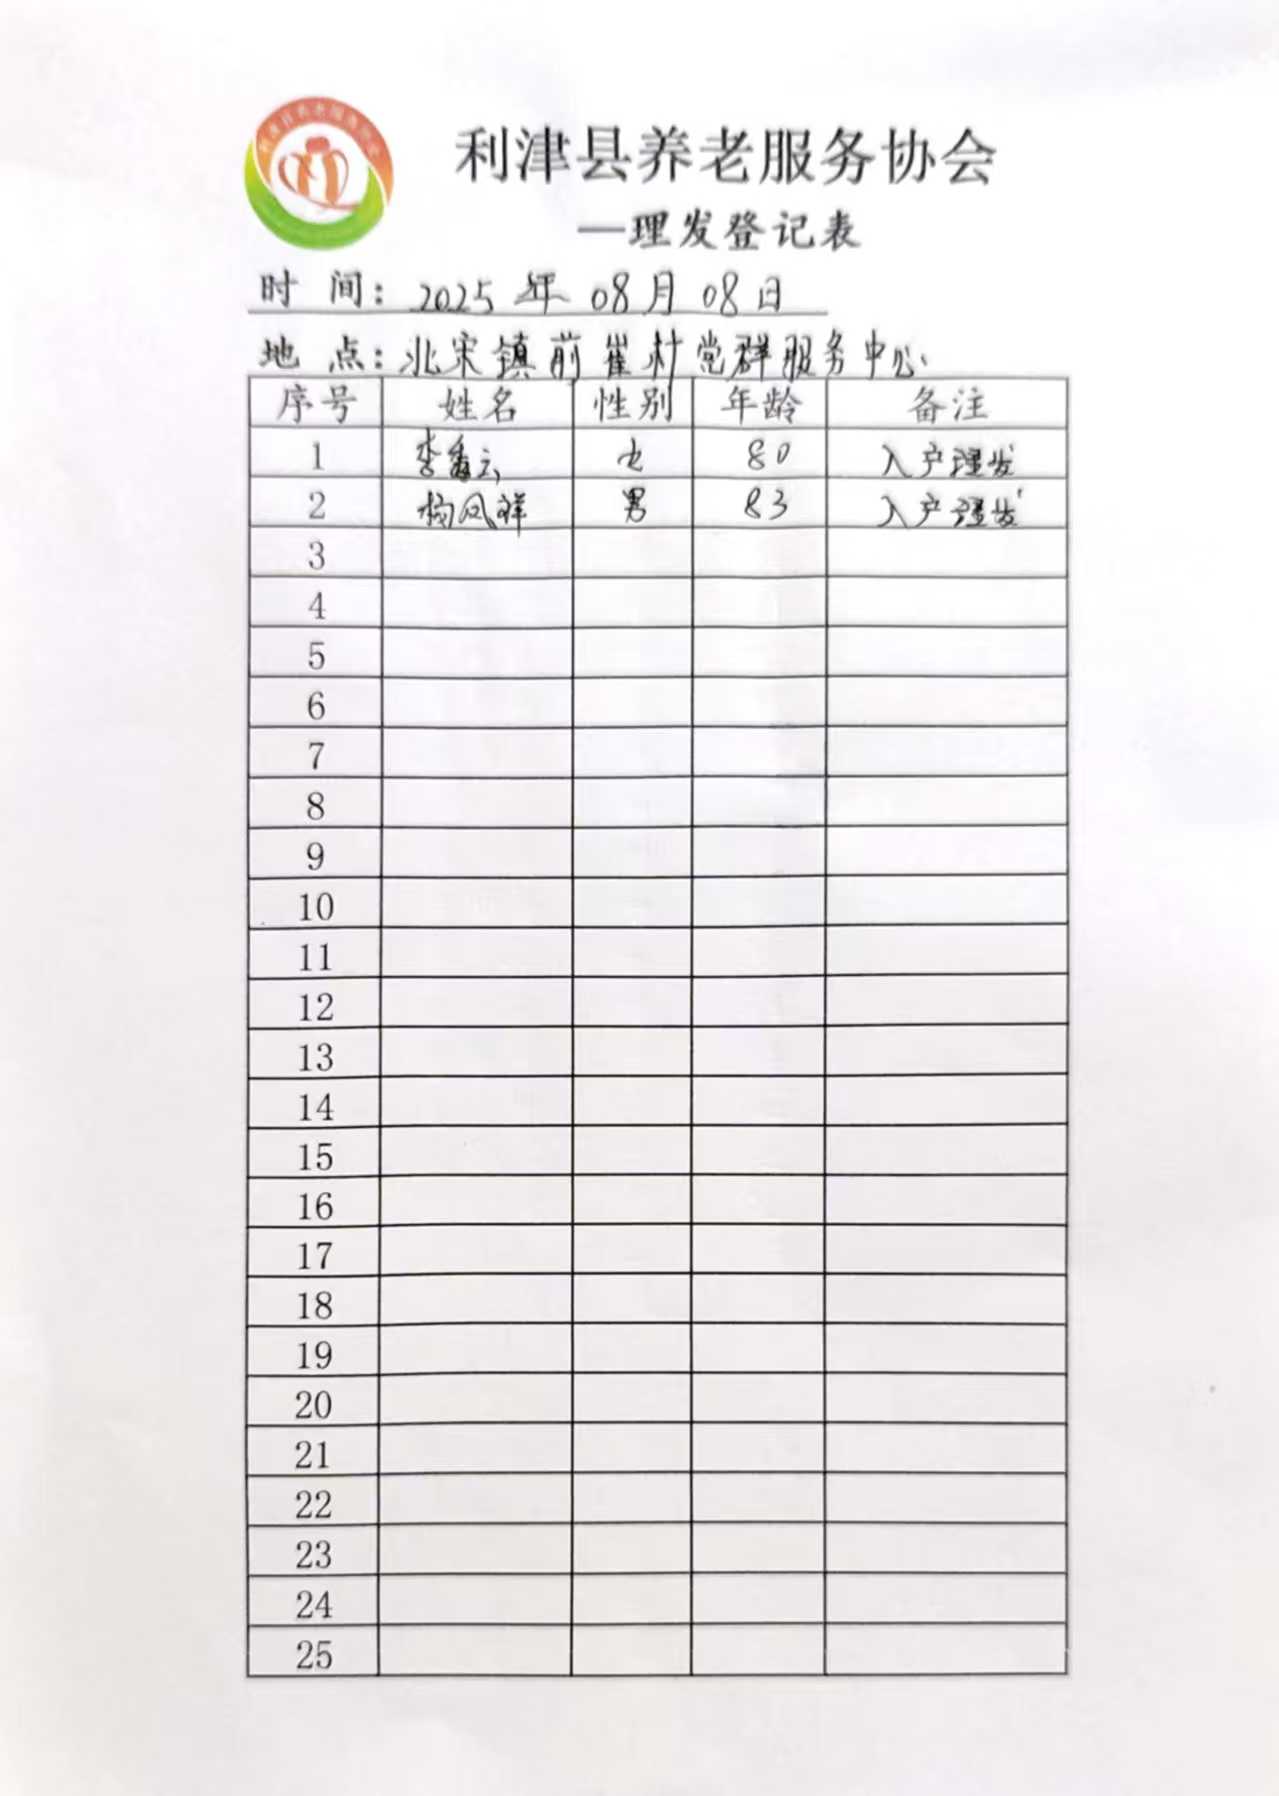 利津县养老服务协会
利津县养老服务协会
—理发登记表
时 间：2025 年 08月 08日
地 点：北宋镇前崔村党群服务中心
序号 姓名 性别 年龄 备注
1 李香云 女 80 入户理发
2 杨风祥 男 83 入户理发
3
4
5
6
7
8
9
10
11
12
13
14
15
16
17
18
19
20
21
22
23
24
25